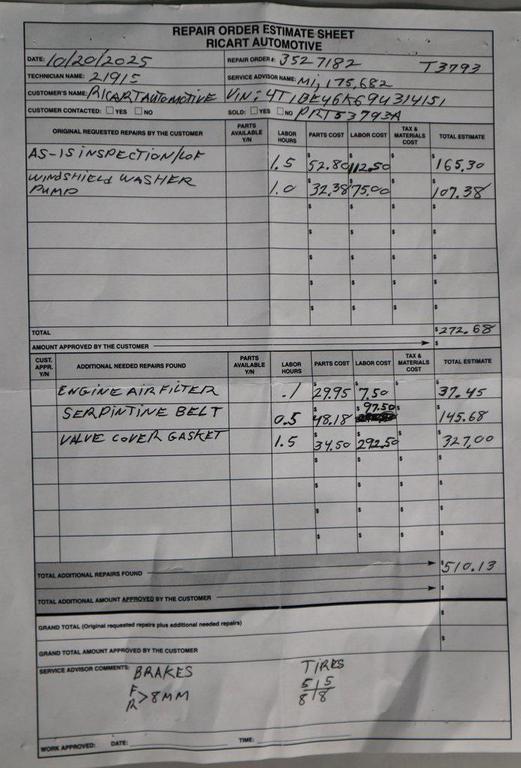 REPAIR ORDER ESTIMATE SHEET
RICART AUTOMOTIVE
DATE: 10/20/2025 REPAIR ORDER #: 3527182 T3793
TECHNICIAN NAME: 21915 SERVICE ADVISOR NAME: Mi, 175,682
CUSTOMER'S NAME: RICART AUTOMOTIVE VIN: 4T1BE46K69U314151
CUSTOMER CONTACTED: YES NO SOLD: YES NO PRT53793A
ORIGINAL REQUESTED REPAIRS BY THE CUSTOMER PARTS AVAILABLE Y/N LABOR HOURS PARTS COST LABOR COST TAX & MATERIALS COST TOTAL ESTIMATE
AS-IS INSPECTION/LOF 1.5 $52.80 $112.50 $ $165.30
WINDSHIELD WASHER PUMP 1.0 $32.38 $75.00 $ $107.38
$ $ $ $
$ $ $ $
$ $ $ $
$ $ $ $
TOTAL $272.68
AMOUNT APPROVED BY THE CUSTOMER $
CUST. APPR. Y/N ADDITIONAL NEEDED REPAIRS FOUND PARTS AVAILABLE Y/N LABOR HOURS PARTS COST LABOR COST TAX & MATERIALS COST TOTAL ESTIMATE
ENGINE AIR FILTER .1 $29.95 $7.50 $ $37.45
SERPINTINE BELT 0.5 $48.18 $97.50 $ $145.68
VALVE COVER GASKET 1.5 $34.50 $292.50 $ $327.00
$ $ $ $
$ $ $ $
$ $ $ $
$ $ $ $
TOTAL ADDITIONAL REPAIRS FOUND $510.13
TOTAL ADDITIONAL AMOUNT APPROVED BY THE CUSTOMER $
GRAND TOTAL (Original requested repairs plus additional needed repairs) $
GRAND TOTAL AMOUNT APPROVED BY THE CUSTOMER $
SERVICE ADVISOR COMMENTS: BRAKES TIRES
F
R >8MM
5|5
8|8
WORK APPROVED: DATE: TIME: